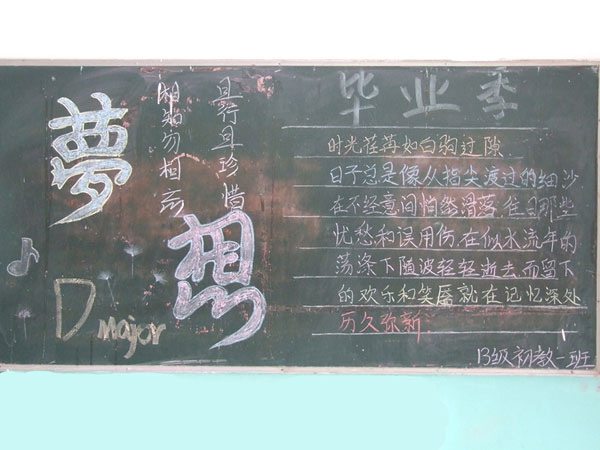 夢想
且行且珍惜
相知勿相忘
D major
毕业季
时光荏苒如白驹过隙
日子总是像从指尖渡过的细沙
在不经意间悄然滑落 往日那些
忧愁和误用伤,在似水流年的
荡涤下随波轻轻逝去,而留下
的欢乐和笑靥就在记忆深处
历久弥新
13级初教一班